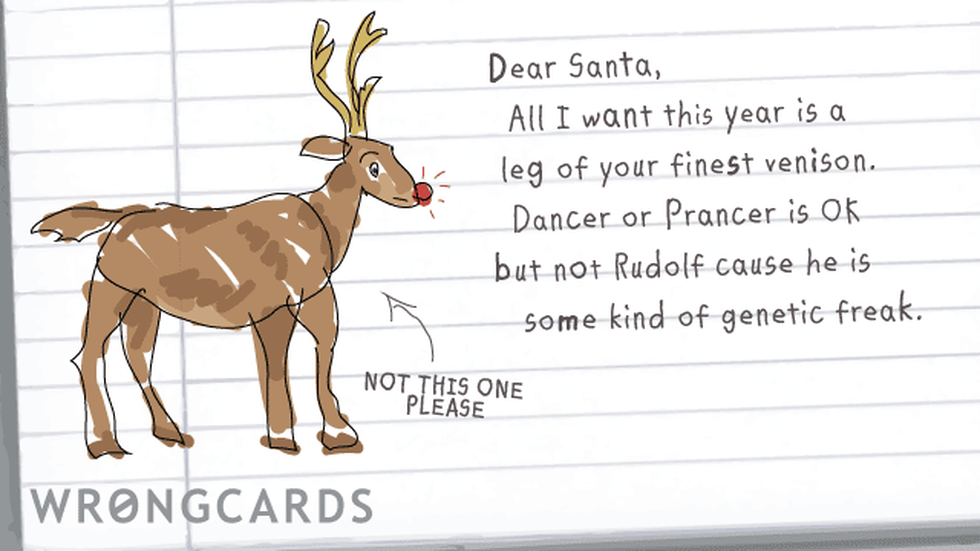 Dear Santa,
All I want this year is a
leg of your finest venison.
Dancer or Prancer is OK
but not Rudolf cause he is
some kind of genetic freak.
NOT THIS ONE
PLEASE
WRONGCARDS